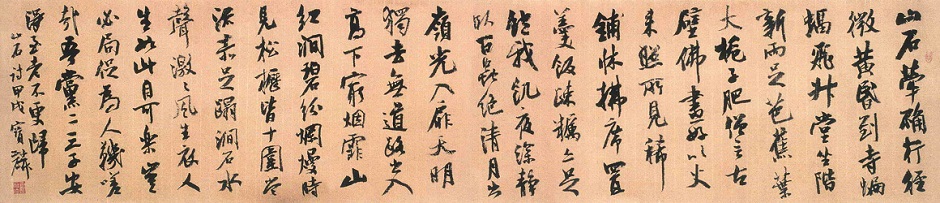 山石犖确行徑
微黃昏到寺蝙
蝠飛升堂坐階
新雨足芭蕉葉
大梔子肥僧言古
壁佛畫好以火
來照所見稀
鋪牀拂席置
羹飯疎糲亦足
飽我飢夜深靜
臥百蟲絕清月出
嶺光入扉天明
獨去無道路出入
高下窮烟霏山
紅澗碧紛爛熳時
見松櫪皆十圍當
流赤足蹋澗石水
聲激々風生衣人
生如此自可樂豈
必局促為人鞿嗟
哉吾黨二三子安
得至老不更歸
山石诗甲戌